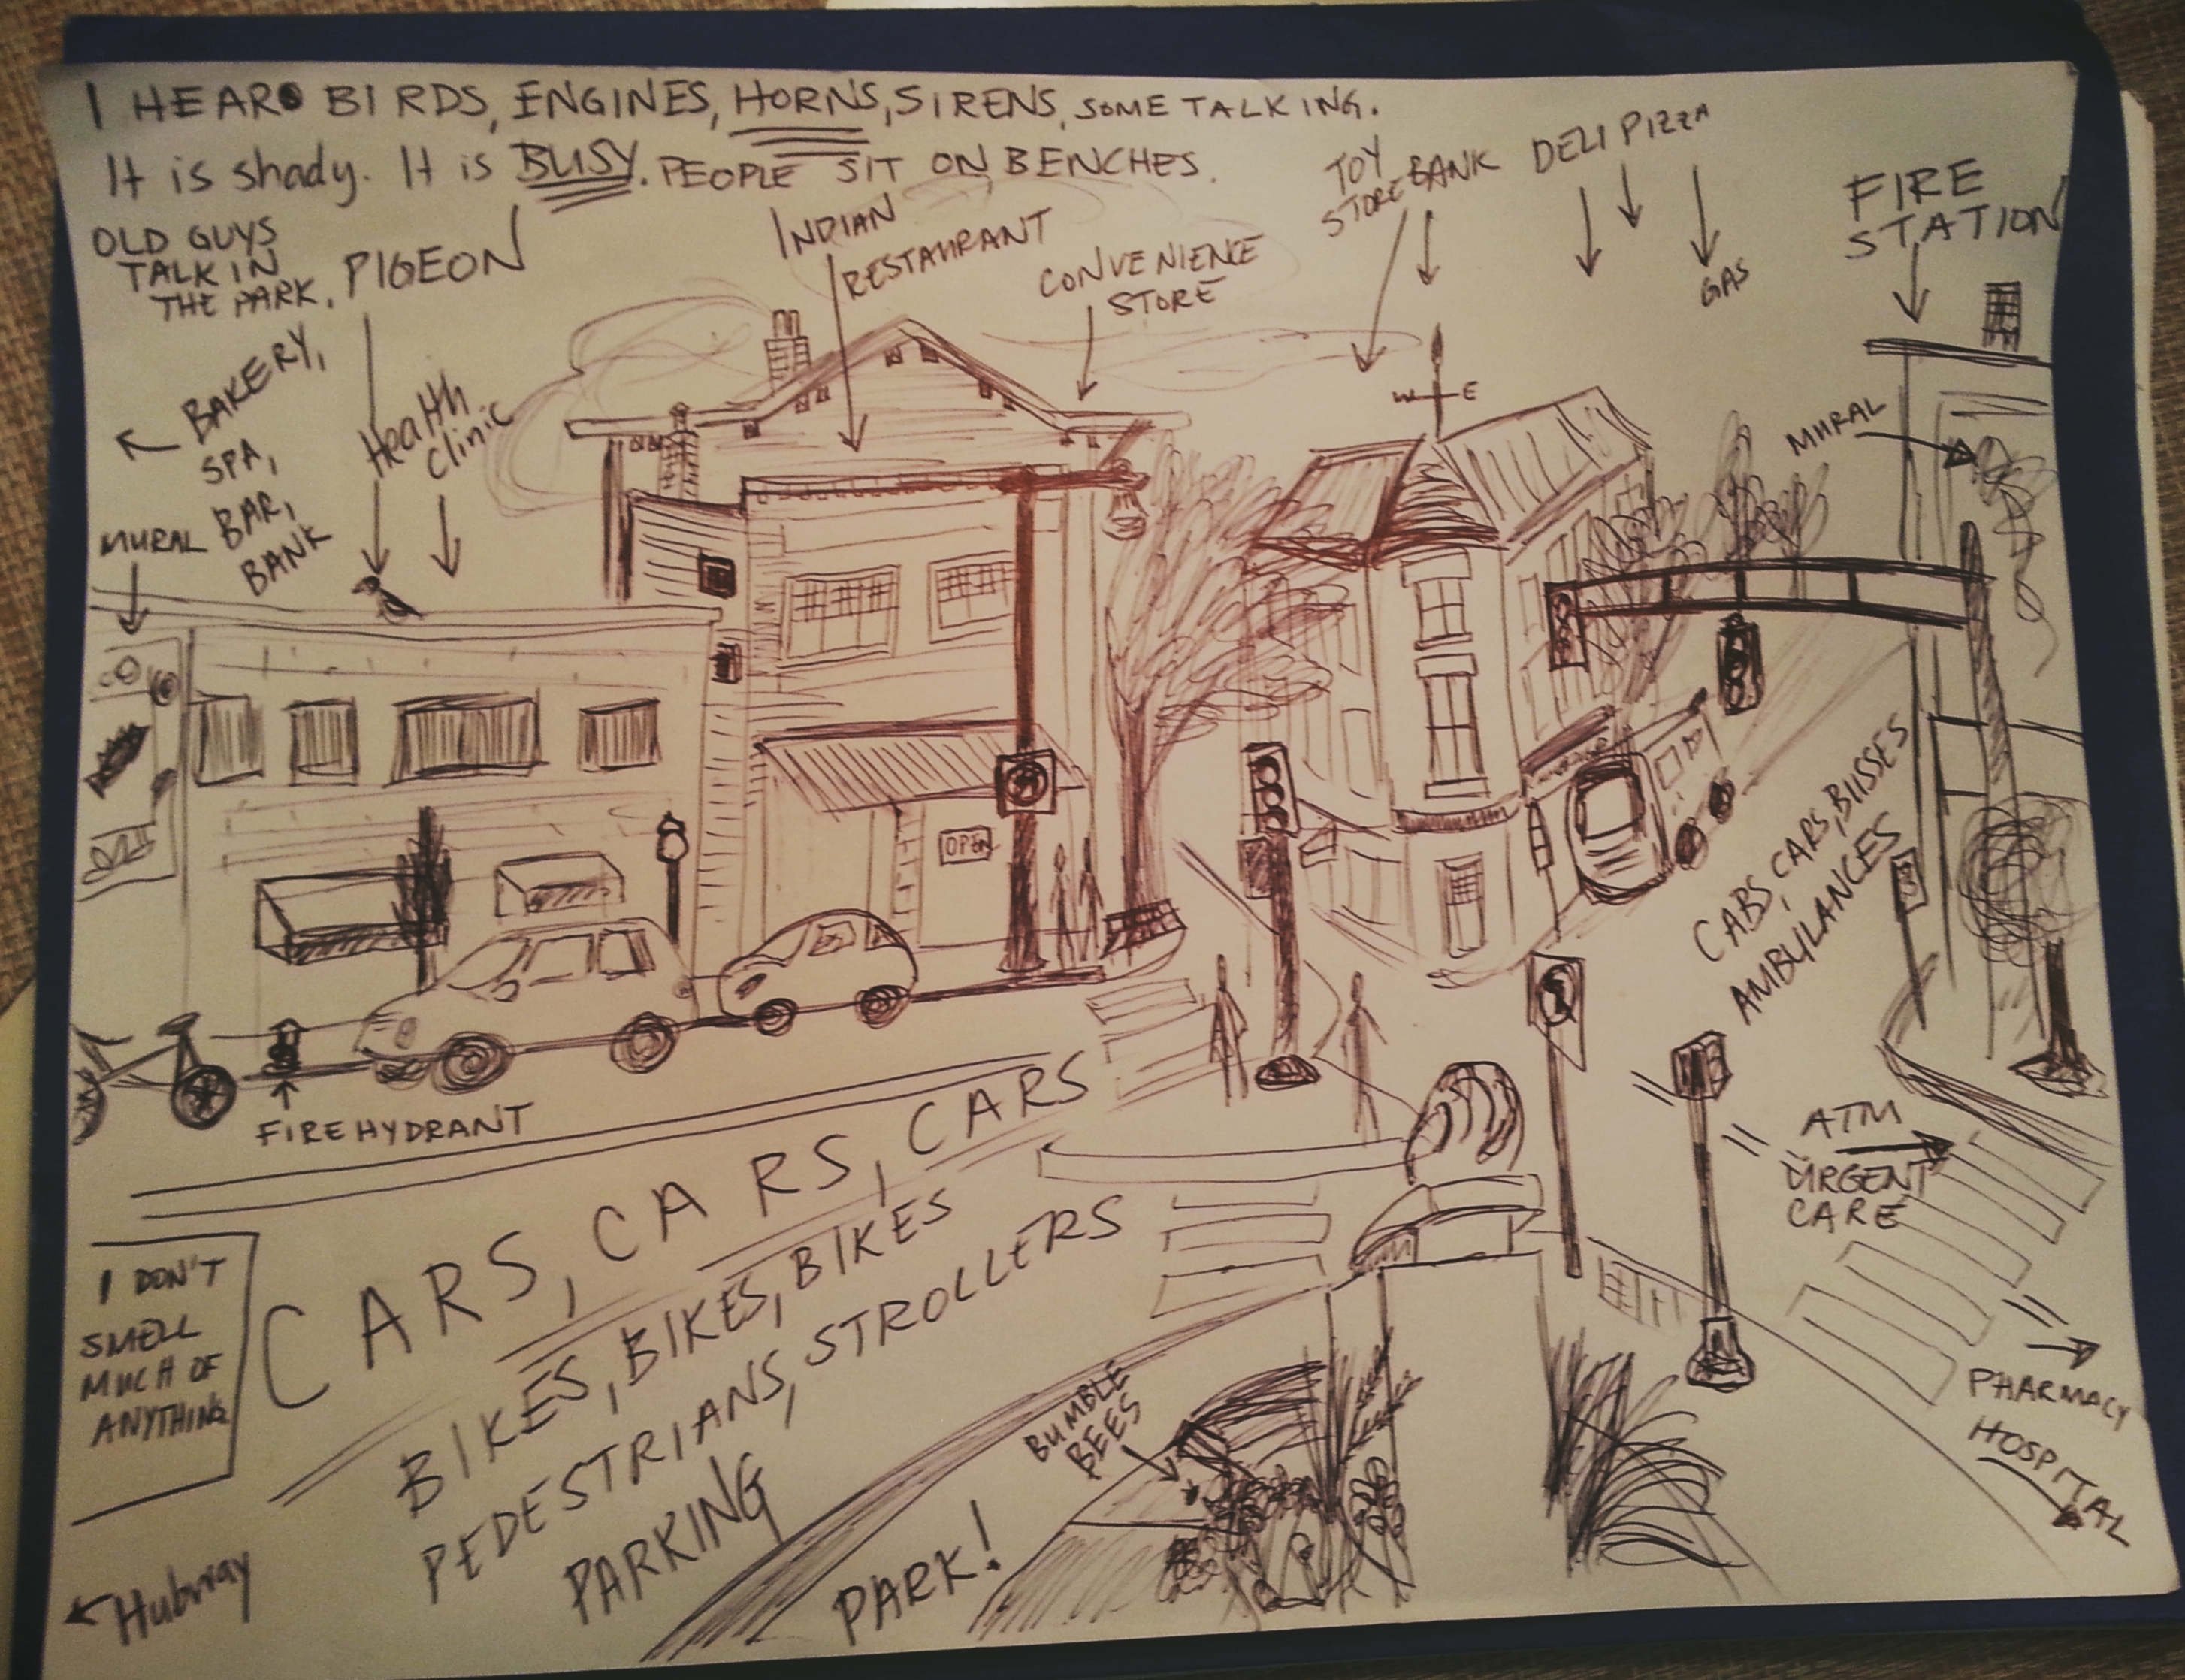 I HEAR BIRDS, ENGINES, HORNS, SIRENS, SOME TALKING.
It is shady. It is BUSY. PEOPLE SIT ON BENCHES.
OLD GUYS
TALK IN
THE PARK.
PIGEON
INDIAN
RESTAURANT
CONVENIENCE
STORE
TOY
STORE
BANK
DELI
PIZZA
GAS
FIRE
STATION
BAKERY,
SPA,
BAR,
BANK
Health
clinic
MURAL
W E
MURAL
OPEN
CABS, CARS, BUSSES
AMBULANCES
FIRE HYDRANT
CARS, CARS, CARS
BIKES, BIKES, BIKES
PEDESTRIANS, STROLLERS
PARKING
ATM
URGENT
CARE
PHARMACY
HOSPITAL
I DON'T
SMELL
MUCH OF
ANYTHING
BUMBLE
BEES
PARK!
Hubway